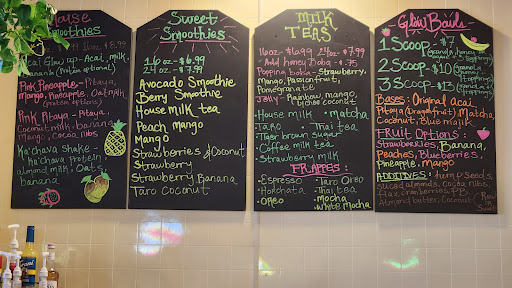 House
Smoothies
16oz $8.99
Acai Glow up - Acai, milk,
banana (protein optional)
Pink Pineapple - Pitaya,
mango, Pineapple, Oatmilk,
(protein options)
Pink Pitaya - Pitaya,
Coconut milk, banana
Mango, Cocoa nibs
Ka'chava Shake -
ka'chava protein,
almond milk, Oats
banana
Sweet
Smoothies
16 oz - $6.99
24 oz - $7.99
Avocado Smoothie
Berry Smoothie
House milk tea
Peach Mango
Mango
Strawberries & Coconut
Strawberry
Strawberry Banana
Taro Coconut
Milk
Teas
16oz - $6.99 24oz - $7.99
Add honey Boba - $.75
Popping boba - Strawberry,
Mango, Passionfruit,
Pomegranate
Jelly - Rainbow, mango,
lychee coconut
House milk · matcha
Taro · Thai tea
Tiger brown sugar
Coffee milk tea
Strawberry milk
Frappes:
Espresso · Taro Oreo
Horchata · Thai tea
Oreo · Mocha
White Mocha
Glow Bowls
1 Scoop - $7
2 Scoop - $10
3 Scoop - $13
Bases: Original acai,
Pitaya (Dragonfruit), Matcha,
Coconut, Blue Majik
Fruit Options:
Strawberries, Banana,
Peaches, Blueberries,
Pineapple, Mango
Additives: hemp seeds,
sliced almonds, cocoa nibs,
flax, cranberries, PB,
Almond butter, Coconut